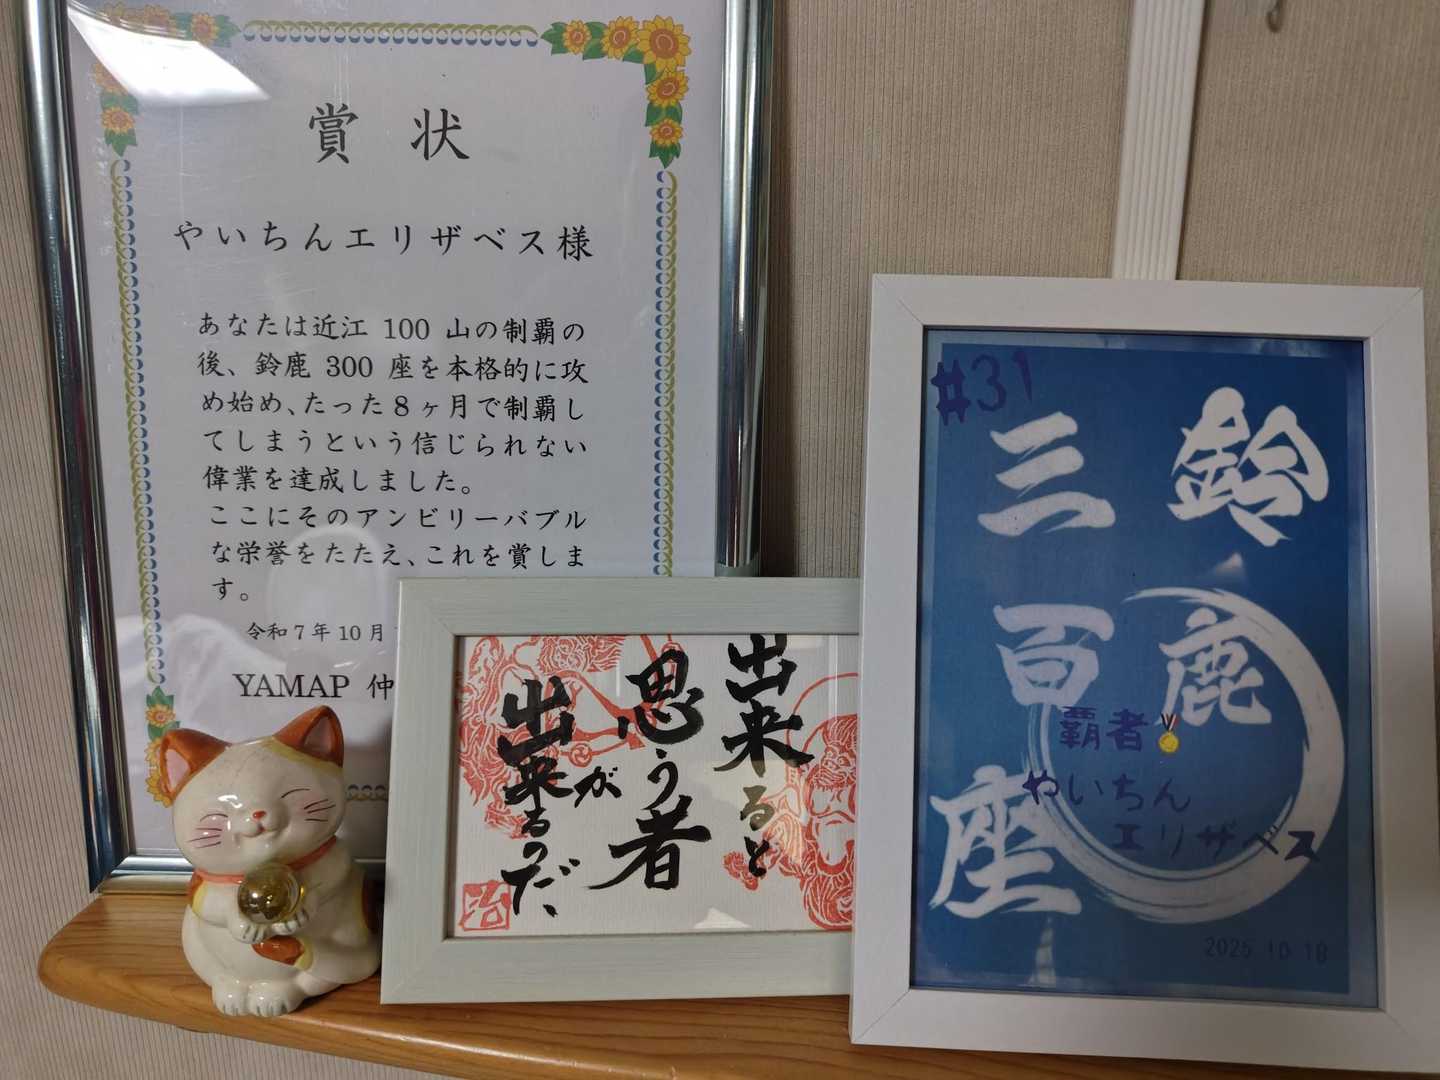 賞状
やいちんエリザベス様
あなたは近江 100 山の制覇の
後、鈴鹿 300 座を本格的に攻
め始め、たった8ヶ月で制覇し
てしまうという信じられない
偉業を達成しました。
ここにそのアンビリーバブル
な栄誉をたたえ、これを賞しま
す。
令和7年10月
YAMAP 仲
出来ると
思う者
が
出来るのだ
治
#31
鈴鹿
三百座
覇者
やいちん
エリザベス
2025 10 18